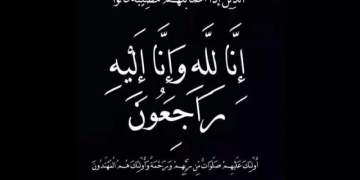 الَّذِينَ إِذَا أَصَابَتْهُمْ مُصِيبَةٌ قَالُوا
إِنَّا لِلَّهِ وَإِنَّا إِلَيْهِ
رَاجِعُونَ
أُولَئِكَ عَلَيْهِمْ صَلَوَاتٌ مِنْ رَبِّهِمْ وَرَحْمَةٌ وَأُولَئِكَ هُمُ الْمُهْتَدُونَ